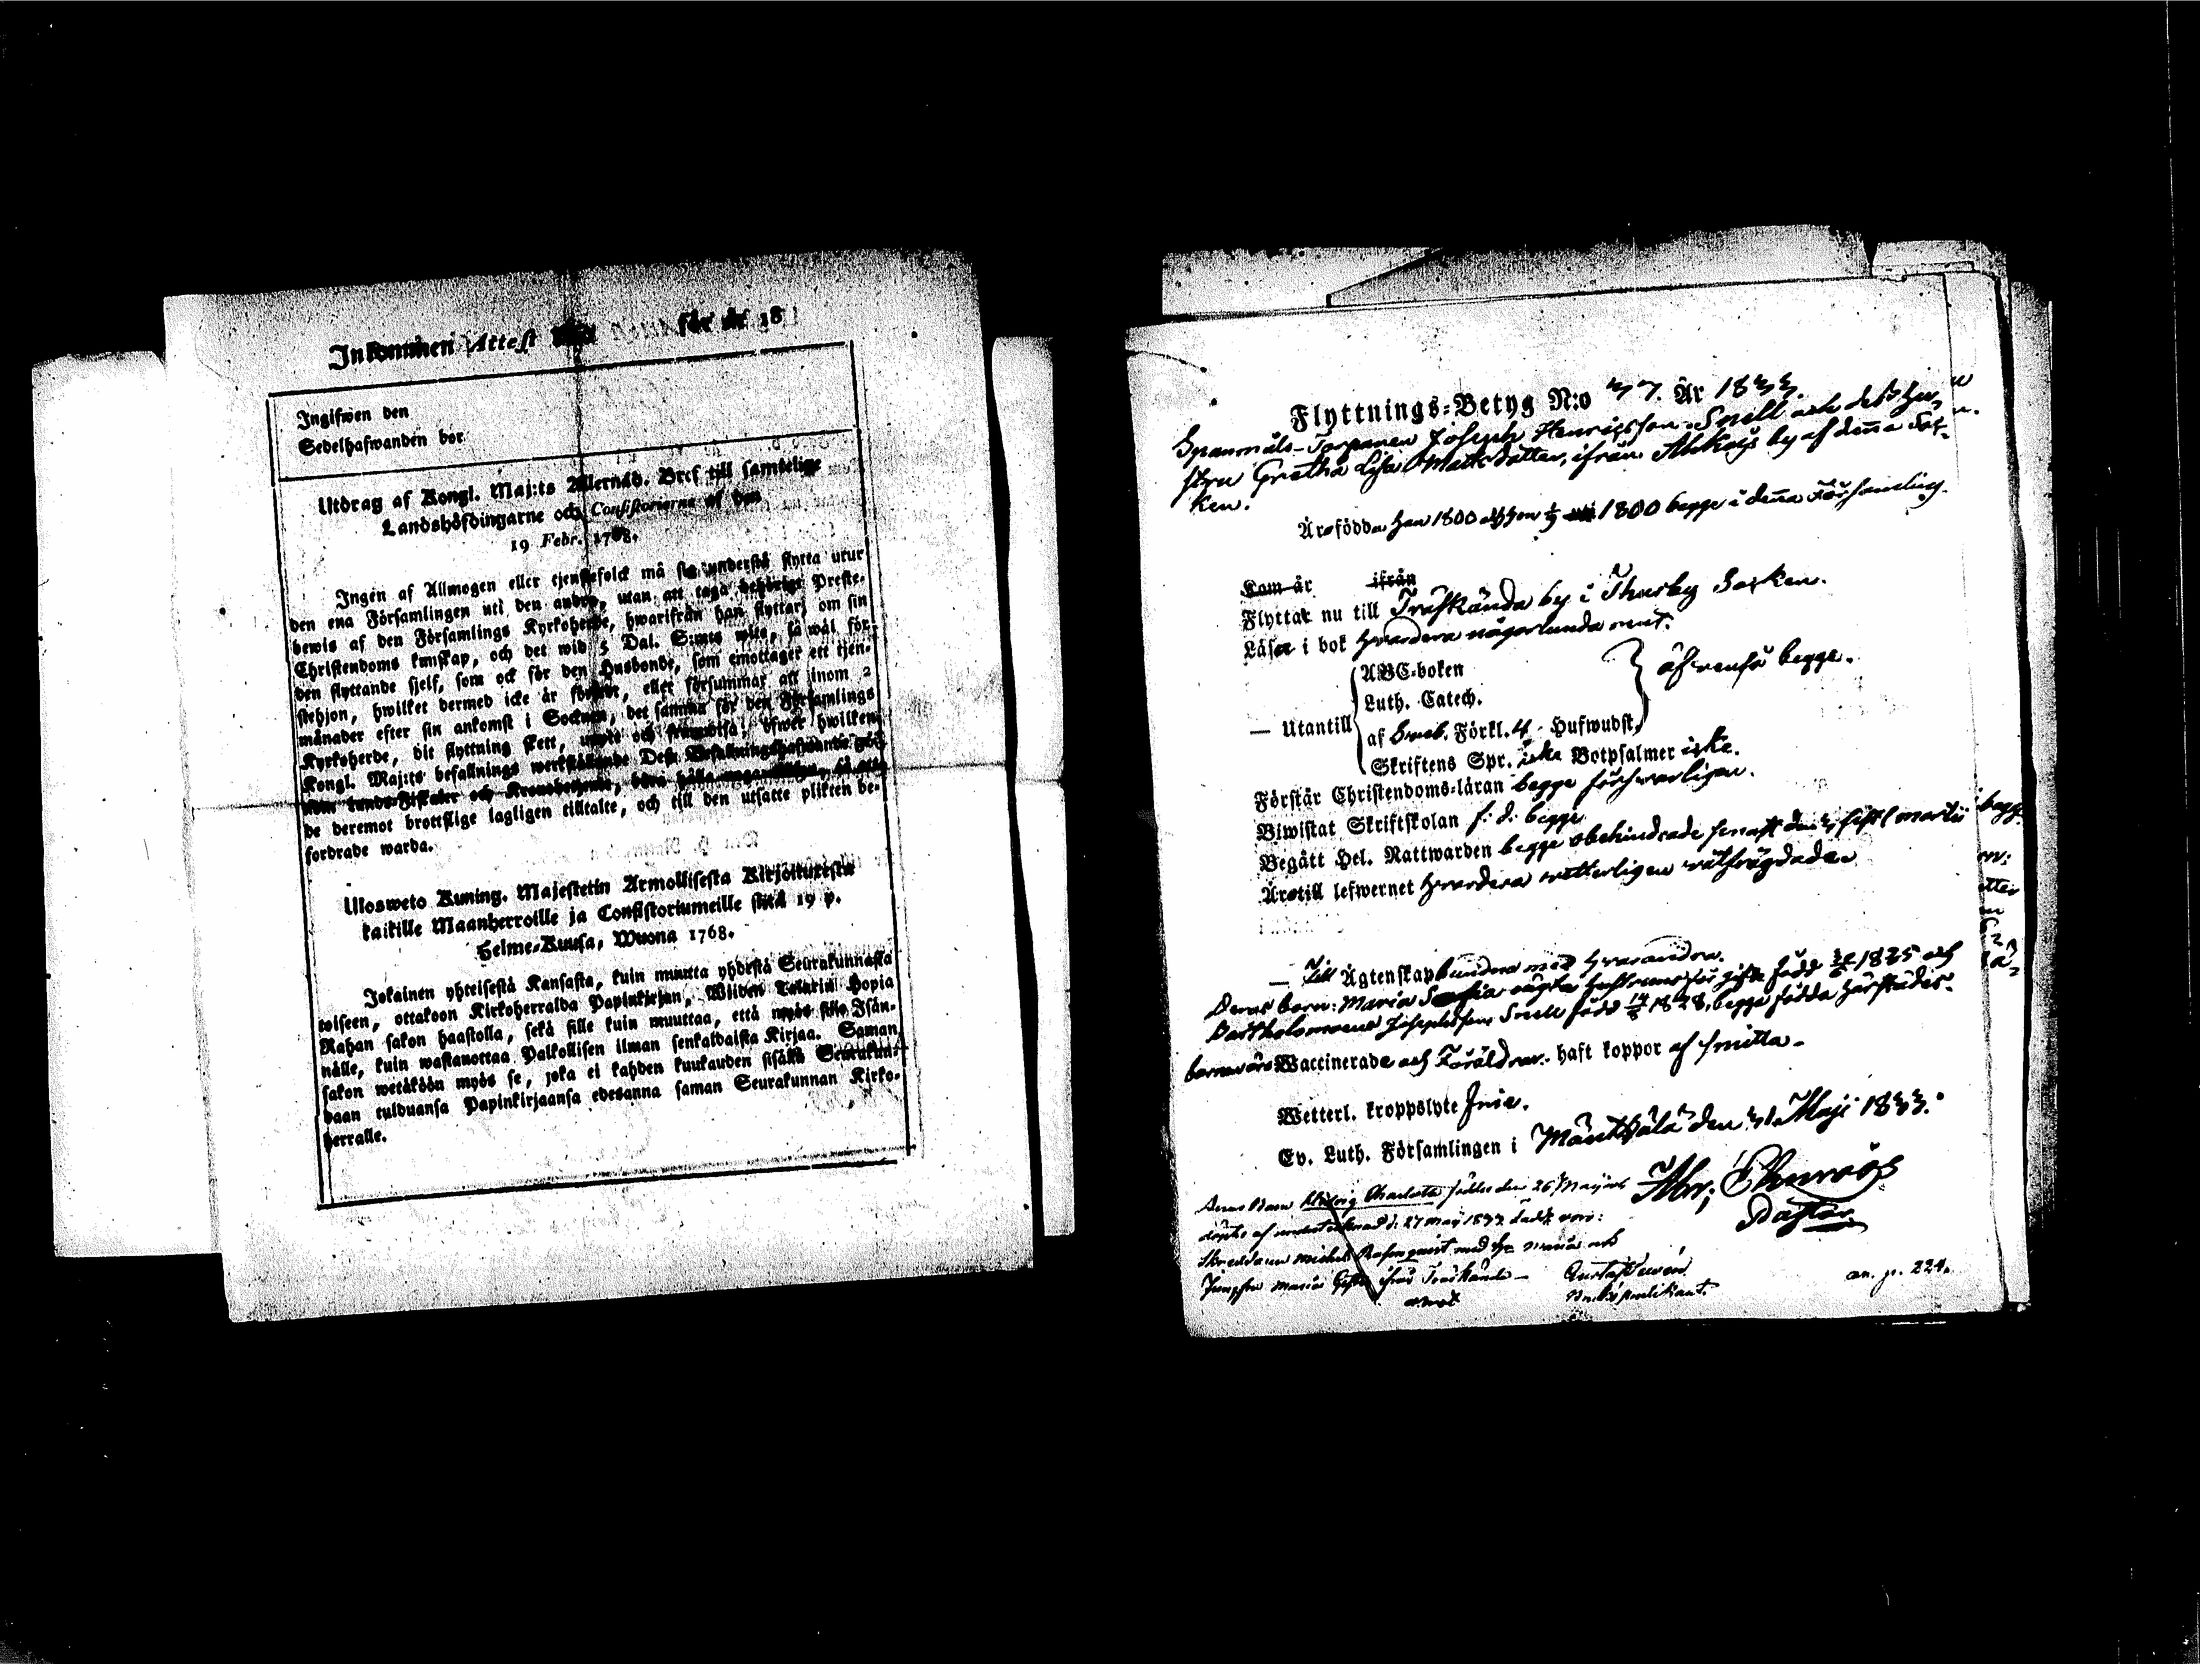 Inkommen Attest för år 18
Ingifwen den
Sedelhafwanden bor
Utdrag af Kongl. Maj:ts Allernåd. Bref till samtelige
Landshöfdingarne och Consistorierne af den
19 Febr. 1768.
Ingen af Allmogen eller tjenstefolck må sig understå flytta utur
den ena Församlingen uti den andra, utan att taga behörigt Preste-
bewis af den Församlings Kyrkoherde, hwarifrån han flyttar, om sin
Christendoms kunskap, och det wid 5 Dal. S:mts wite, så wäl för
den flyttande sjelf, som ock för den Husbonde, som emottager ett tjen-
stehjon, hwilket dermed icke är försedt, eller försummar att inom 2
månader efter sin ankomst i Socknen, det samma för den Församlings
Kyrkoherde, dit flyttning skett, upte och framwisa; öfwer hwilken
Kongl. Maj:ts befallnings werkställande Dess Befallningshafwande
de deremot brottslige lagligen tilltalte, och till den utsatte plikten be-
fordrade warda.
Ulosweto Kuning. Majestetin Armollisesta Kirjoituxesta
kaikille Maanherroille ja Consistoriumeille siitä 19 p.
Helme-Kuusa, Wuona 1768.
Jokainen yhteisestä Kansasta, kuin muutta yhdestä Seurakunnasta
toiseen, ottakoon Kirkoherralda Papinkirjan, Wiiden Talarin Hopia
Rahan sakon haastolla, sekä sille kuin muuttaa, että myös sille Isän-
nälle, kuin wastanottaa Palkollisen ilman senkaldaista Kirjaa. Saman
sakon wetäköön myös se, joka ei kahden kuukauden sisällä Seurakun-
daan tulduansa Papinkirjaansa edesanna saman Seurakunnan Kirko-
herralle.
Flyttnings-Betyg N:o 37. År 1833.
Spanmåls-Torparen Joseph Henricsson Snell och dess Hu-
stru Gretha Lisa Mattsdotter, ifrån Ahkojs by af denna Soc-
ken.
Äro födda han 1800 och hon 1800 begge i denna Församling.
Kom år ifrån
Flyttar nu till Träskända by i Thusby Socken.
Läser i bok hvardera någorlunda rent.
— Utantill
ABC-boken
Luth. Catech.
af Sweb. Förkl. 4 Hufwudst.
Skriftens Spr. icke Botpsalmer icke.
äfvenså begge.
Förstår Christendoms-läran begge försvarligen.
Biwistat Skriftskolan f. d. begge
Begått Hel. Nattwarden begge obehindrade senast den sistl. martii
Äro till lefwernet hvardera witterligen wälfrägdade
— Till Ägtenskap bundna med hvarandra.
Deras barn: Maria Sofia född 1825 och
Bartholomeus Josephsson Snell född 1828, begge födda härstädes.
barnen äro Waccinerade och Föräldrar. haft koppor af smitta.
Wetterl. kroppslyte fria.
Ev. Luth. Församlingen i Mäntsälä den 31 Maji 1833.
Abr. Ehnroos
Pastor.
Deras Barn Hedvig Charlotta föddes den 26 Maji
döptes af undertecknad d. 27 Maji 1833 Faddr. voro:
Skräddaren Michel Rosenqvist med h. Maria och
Jungfru Maria ifrån Träskända —
an. p. 224.